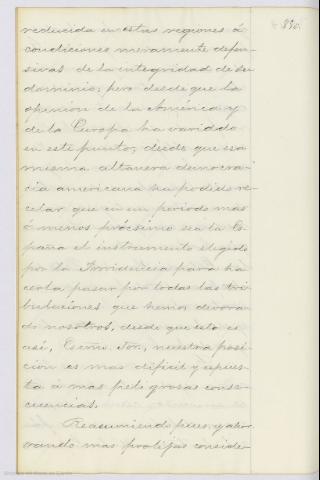 890.
reducida en estas regiones á
condiciones meramente defen-
sivas de la integridad de su
dominio; pero desde que la
opinion de la América y
de la Europa ha variado
en este punto; desde que esa
misma altanera democra-
cia americana ha podido re-
celar que en un periodo mas
ó menos prócsimo sea la Es-
paña el instrumento elegido
por la Providencia para ha
cerla pasar por todas las tri-
bulaciones que hemos devora-
do nosotros, desde que esto es
así, Escmo. Sor., nuestra posi-
cion es mas dificil y espues-
ta á mas peligrosas conse-
cuencias.
Reasumiendo pues, y ahor
rando mas prolijas conside-